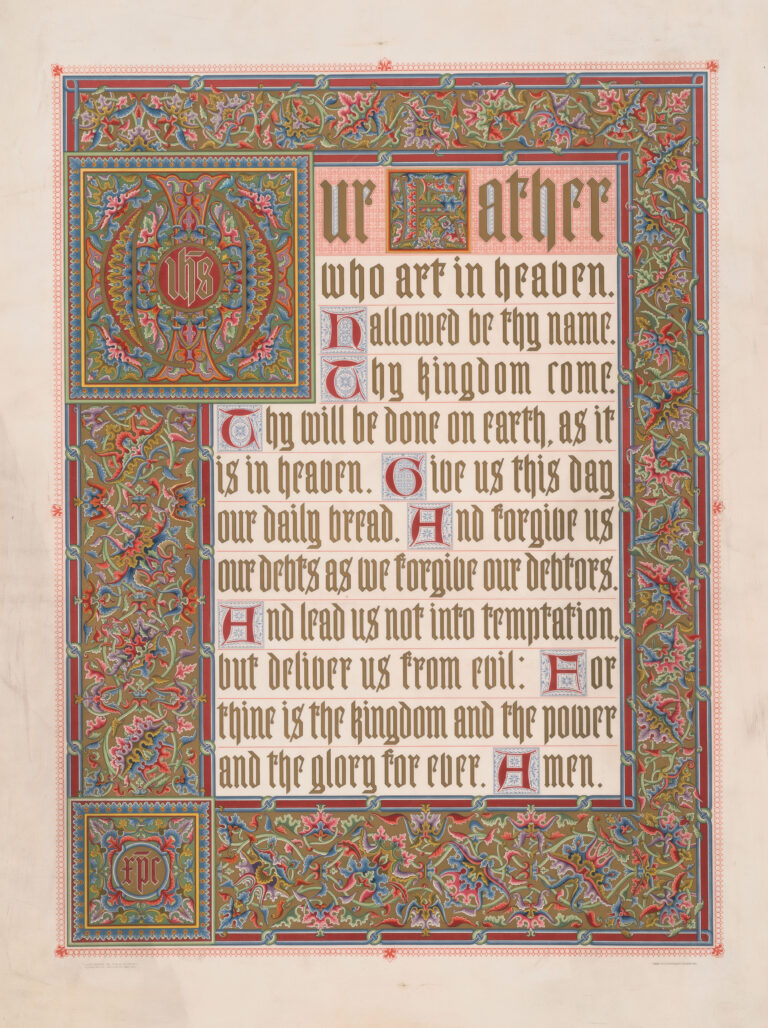 Our Father
who art in heaven.
Hallowed be thy name.
Thy kingdom come.
Thy will be done on earth, as it
is in heaven. Give us this day
our daily bread. And forgive us
our debts as we forgive our debtors.
And lead us not into temptation,
but deliver us from evil: For
thine is the kingdom and the power
and the glory for ever. Amen.
ihs
xpc